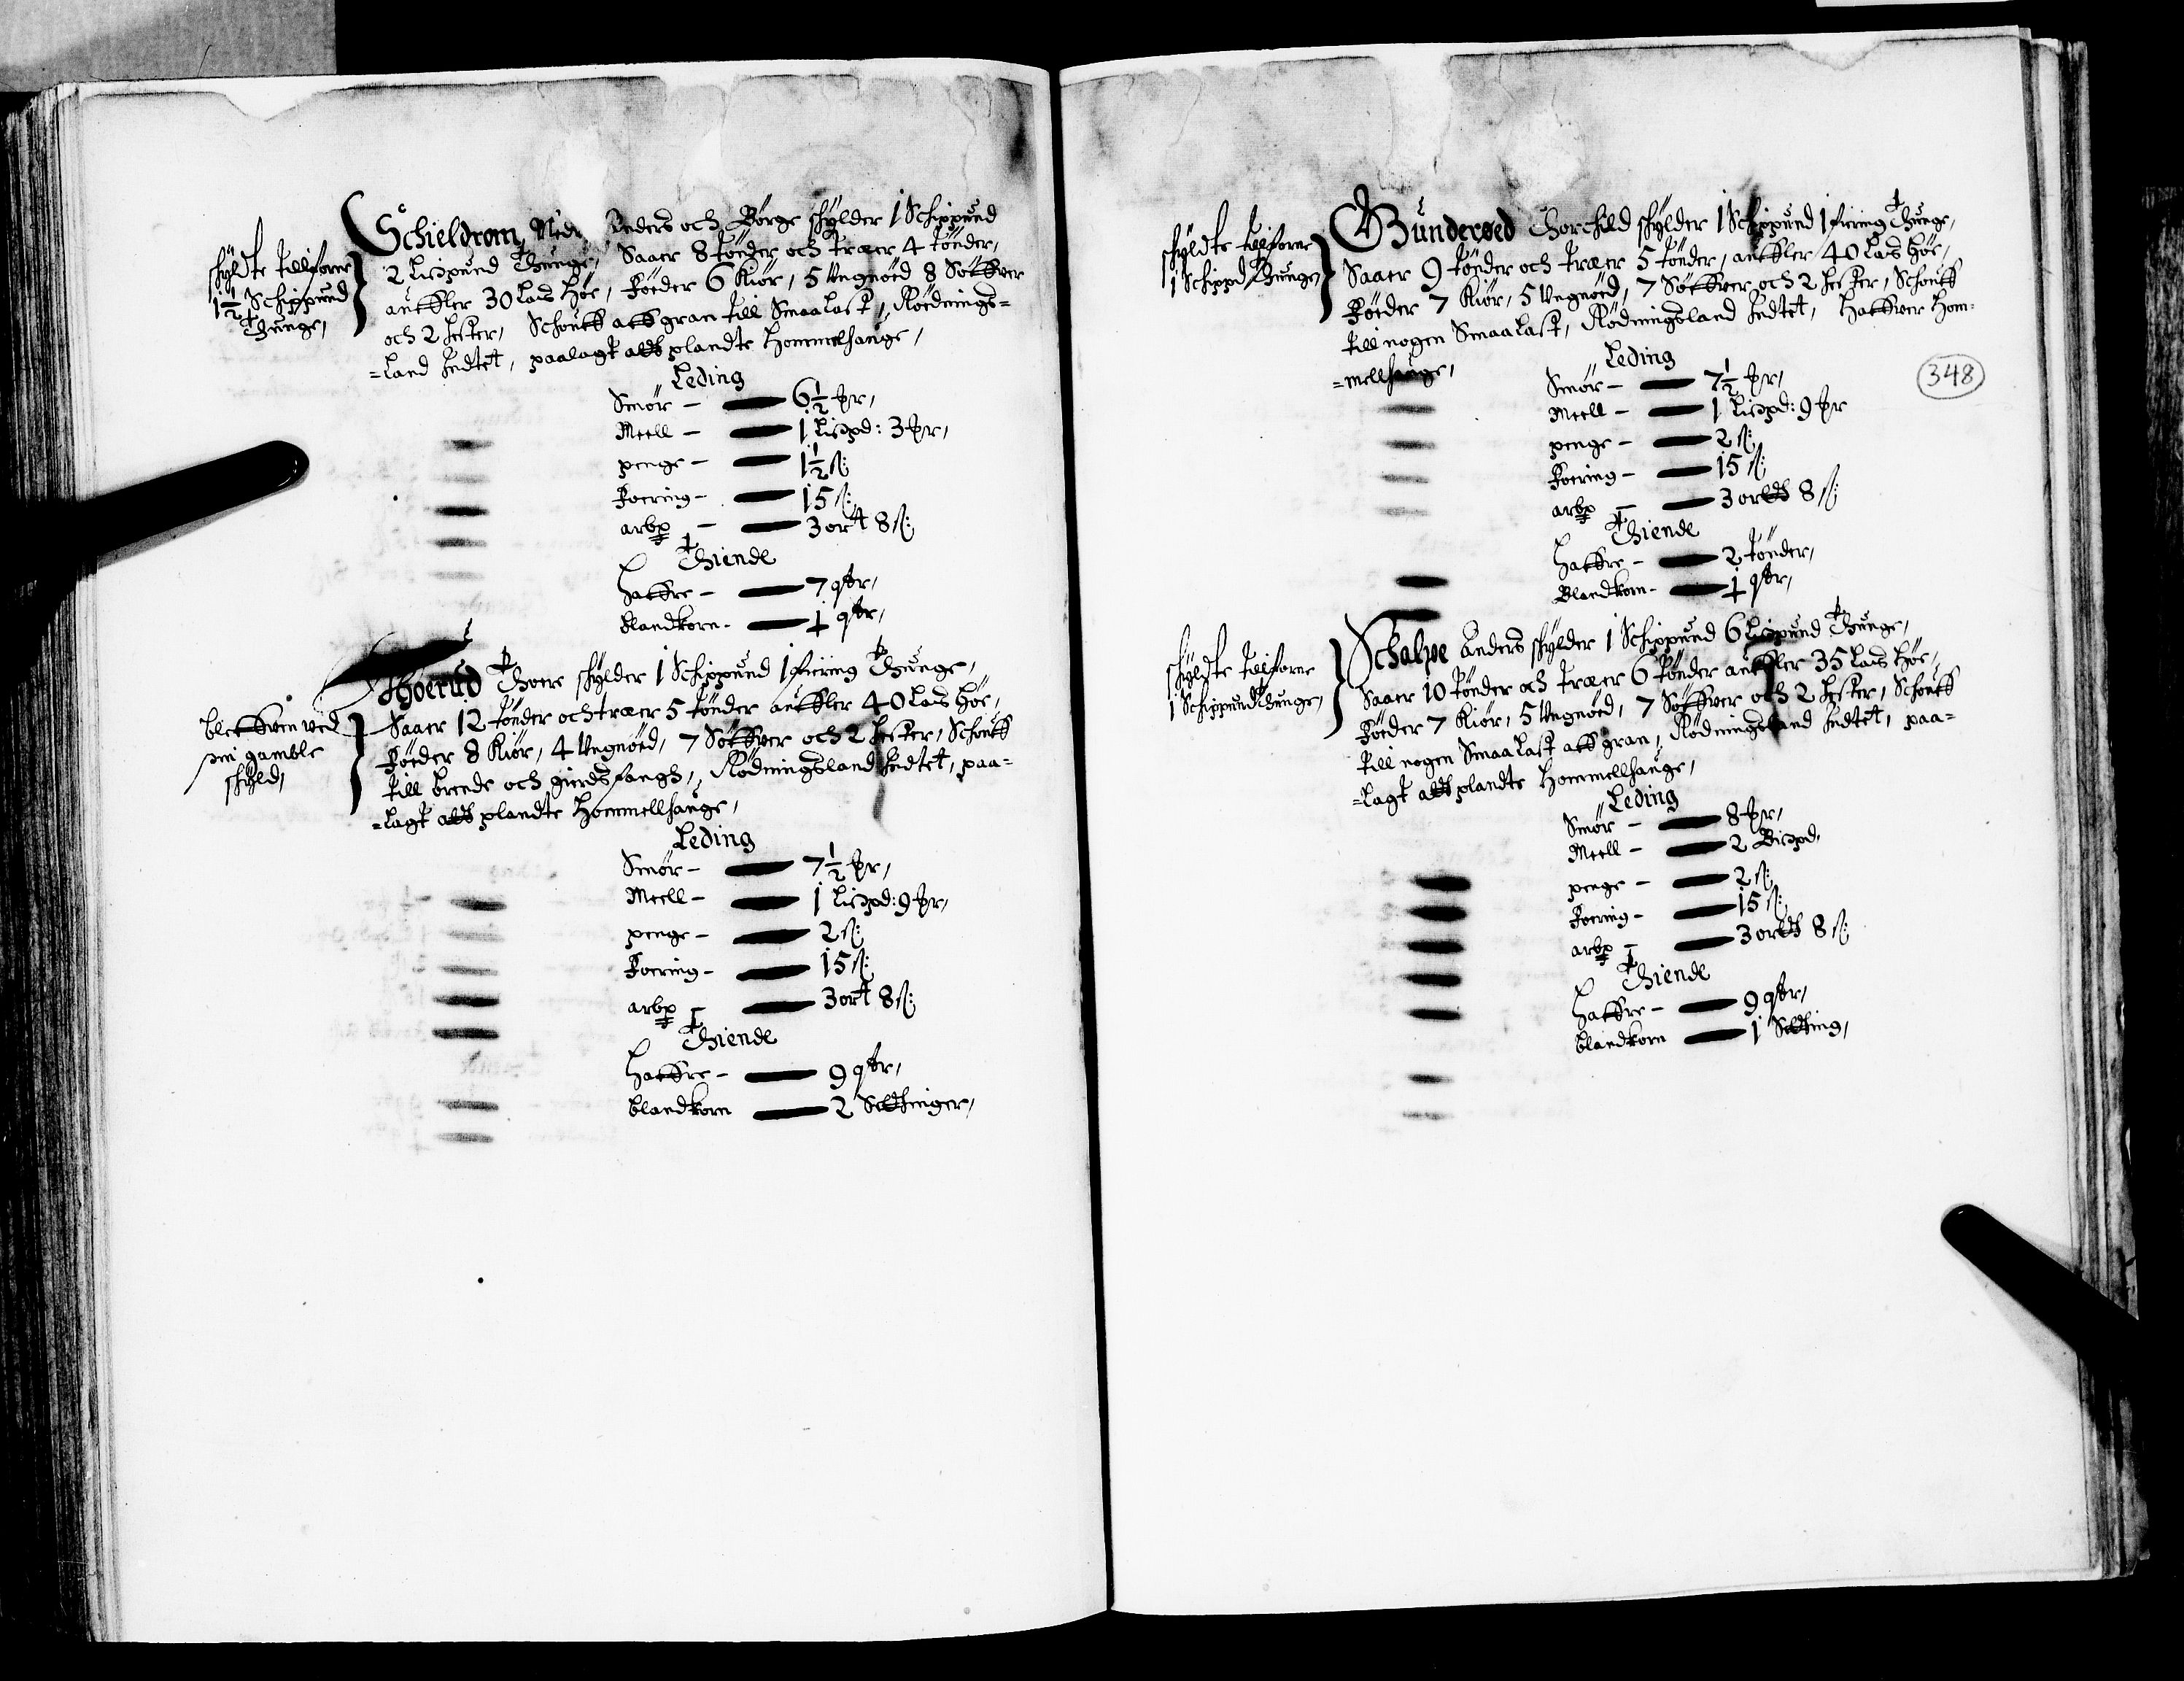 Schieldrom, Anders och Børge schylder 1 Schippund
2 Lispund Thunge, Saaer 8 tønder och træer 4 tønder,
aufler 30 Lass høe, Føeder 6 Kiør, 5 Ungnød 8 Søffuer
och 2 hester, Schouff aff gran till Smaalast, Rødnings=
=land Indtet, paalagt att plandte Hommelhauge,
schyldte tillforne
1½ Schippund
Thunge,
Leding
Smør - 6½ pr,
Meell - 1 Lispd: 3 pr,
penge - 1½ s:
Foering - 15 s:
arbp - 3 ort 8 s:
Thiende
haffre - 7 qtr,
blandkorn - 1 qtr,
Thoerud Thore schylder 1 Schippund 1 fiering Thunge,
Saaer 12 tønder och træer 5 tønder aufler 40 Lass høe,
Føeder 8 Kiør, 4 Ungnød, 7 Søffuer och 2 hester, Schouff
till brende och gierdsfangh, Rødningsland Indtet, paa=
=lagt att plandte Hommellhauge,
bleffuen ved
sin gamble
schyld,
Leding
Smør - 7½ pr,
Meell - 1 Lispd: 9 pr,
penge - 2 s:
Foering - 15 s:
arbp - 3 ort 8 s:
Thiende
haffre - 9 qtr,
blandkorn 2 Settinger,
Gunderøed Thorchild schylder 1 Schippund 1 fiering Thunge,
Saaer 9 tønder och træer 5 tønder, aufler 40 Lass høe,
Føeder 7 Kiør, 5 Ungnød, 7 Søffuer och 2 hester, Schouff
till nogen Smaalast, Rødningsland Indtet, haffuer Hom=
=mellhauge,
schyldte tillforne
1 Schippd Thunge,
348
Leding
Smør - 7½ pr,
Meell - 1 Lispd: 9 pr
penge - 2 s:
Foering - 15 s:
arbp - 3 ortt 8 s:
Thiende
haffre - 2 tønder,
Blandkorn - 1 qtr,
Schalpe Anders schylder 1 Schippund 6 Lispund Thunge,
Saaer 10 tønder och træer 6 tønder aufler 35 Lass høe,
Føeder 7 Kiør, 5 Ungnød, 7 Søffuer och 2 hester, Schouff
till nogen Smaalast aff gran, Rødningsland Indtet, paa=
=lagt att plandte Hommellhauge,
schyldte tillforne
1 Schippund Thunge,
Leding
Smør - 8 pr,
Meell - 2 Bispd,
penge - 2 s:
Foering - 15 s:
arbp - 3 ortt 8 s:
Thiende
haffre - 9 qtr,
blandkorn 1 Setting,